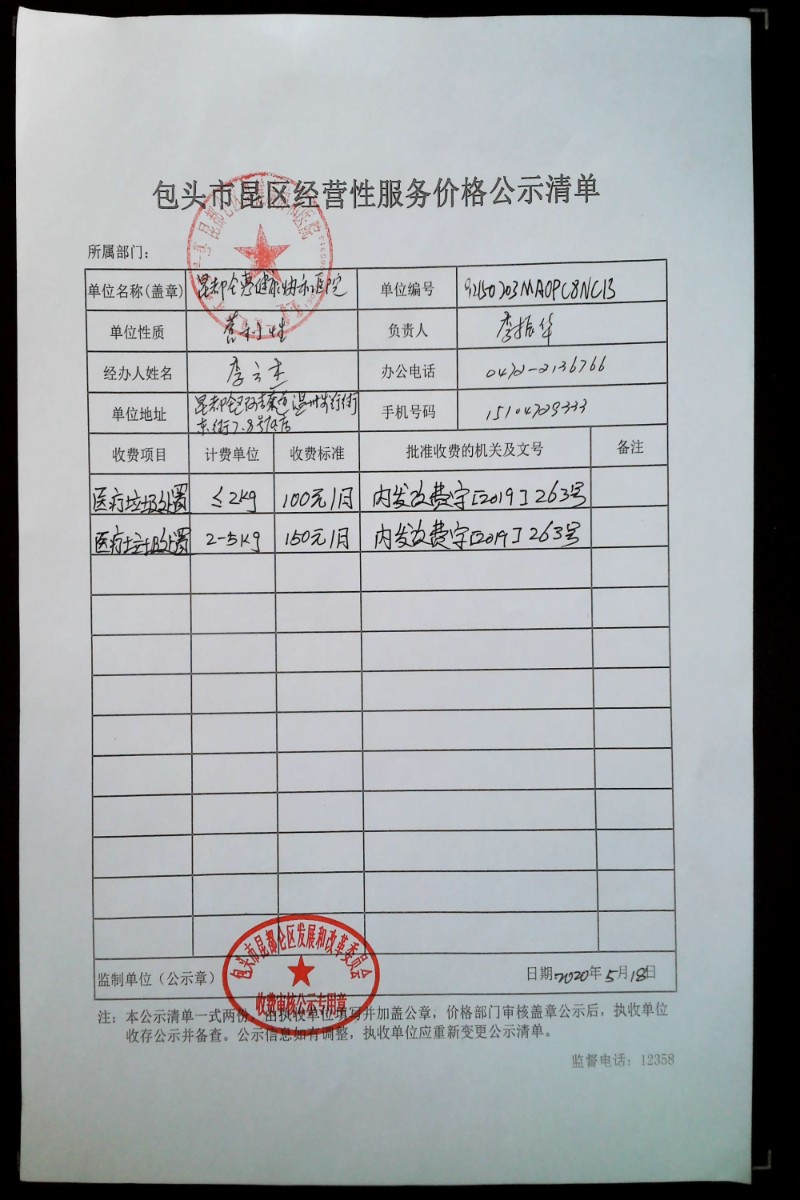 包头市昆区经营性服务价格公示清单
所属部门：
单位名称(盖章) 昆都仑惠健康协和医院 单位编号 92150203MA0PC8NC1B
单位性质 营利性 负责人 李振华
经办人姓名 李云杰 办公电话 0472-2136766
单位地址 昆都仑区 温州步行街 手机号码 15104729333
东街7.8号
收费项目 计费单位 收费标准 批准收费的机关及文号 备注
医疗垃圾处置 ≤2kg 100元/月 内发改费字[2019]263号
医疗垃圾处置 2-5kg 150元/月 内发改费字[2019]263号
监制单位（公示章） 日期2020年5月18日
包头市昆都仑区发展和改革委员会
收费审核公示专用章
注：本公示清单一式两份，由执收单位填写并加盖公章，价格部门审核盖章公示后，执收单位
收存公示并备查。公示信息如有调整，执收单位应重新变更公示清单。
监督电话：12358